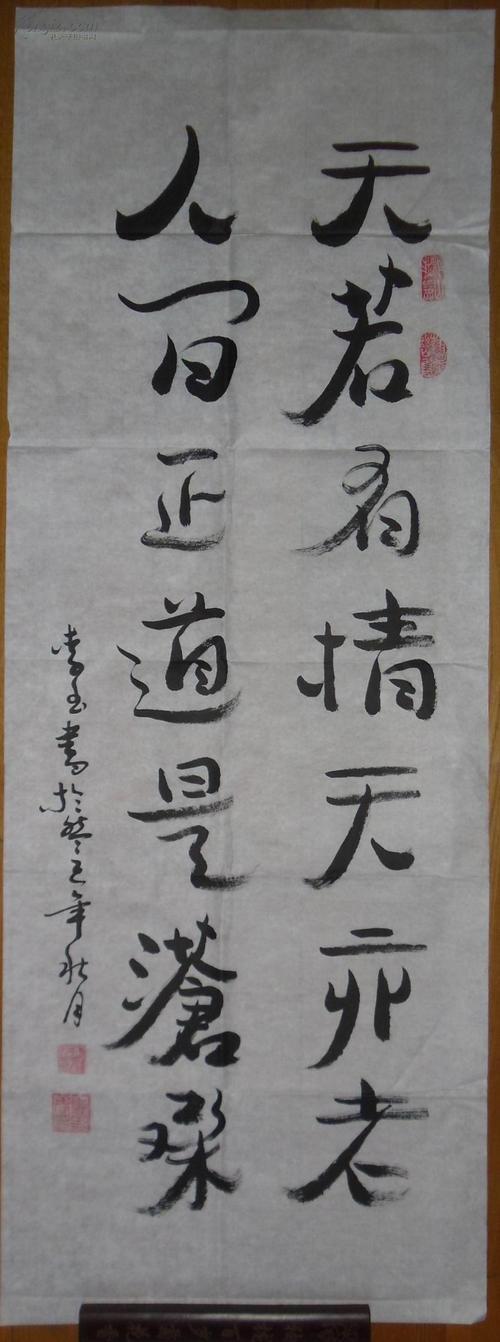 天若有情天亦老
人间正道是滄桑
書於癸巳年秋月